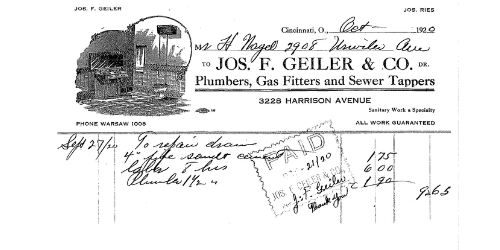 JOS. F. GEILER
JOS. RIES
Cincinnati, O., Oct 1920
Mr H Nagel 2908 Urwiler Ave
TO JOS. F. GEILER & CO. DR.
Plumbers, Gas Fitters and Sewer Tappers
3228 HARRISON AVENUE
Sanitary Work a Specialty
PHONE WARSAW 1008
ALL WORK GUARANTEED
Sep 27/20 To repair drain
4" pipe sand cement 1.75
Labor 8 hrs 6.00
Plumber 1 1/2 " 1.90
9.65
PAID
21/20
JOS. F. GEILER & CO.
J. F. Geiler
Thank you